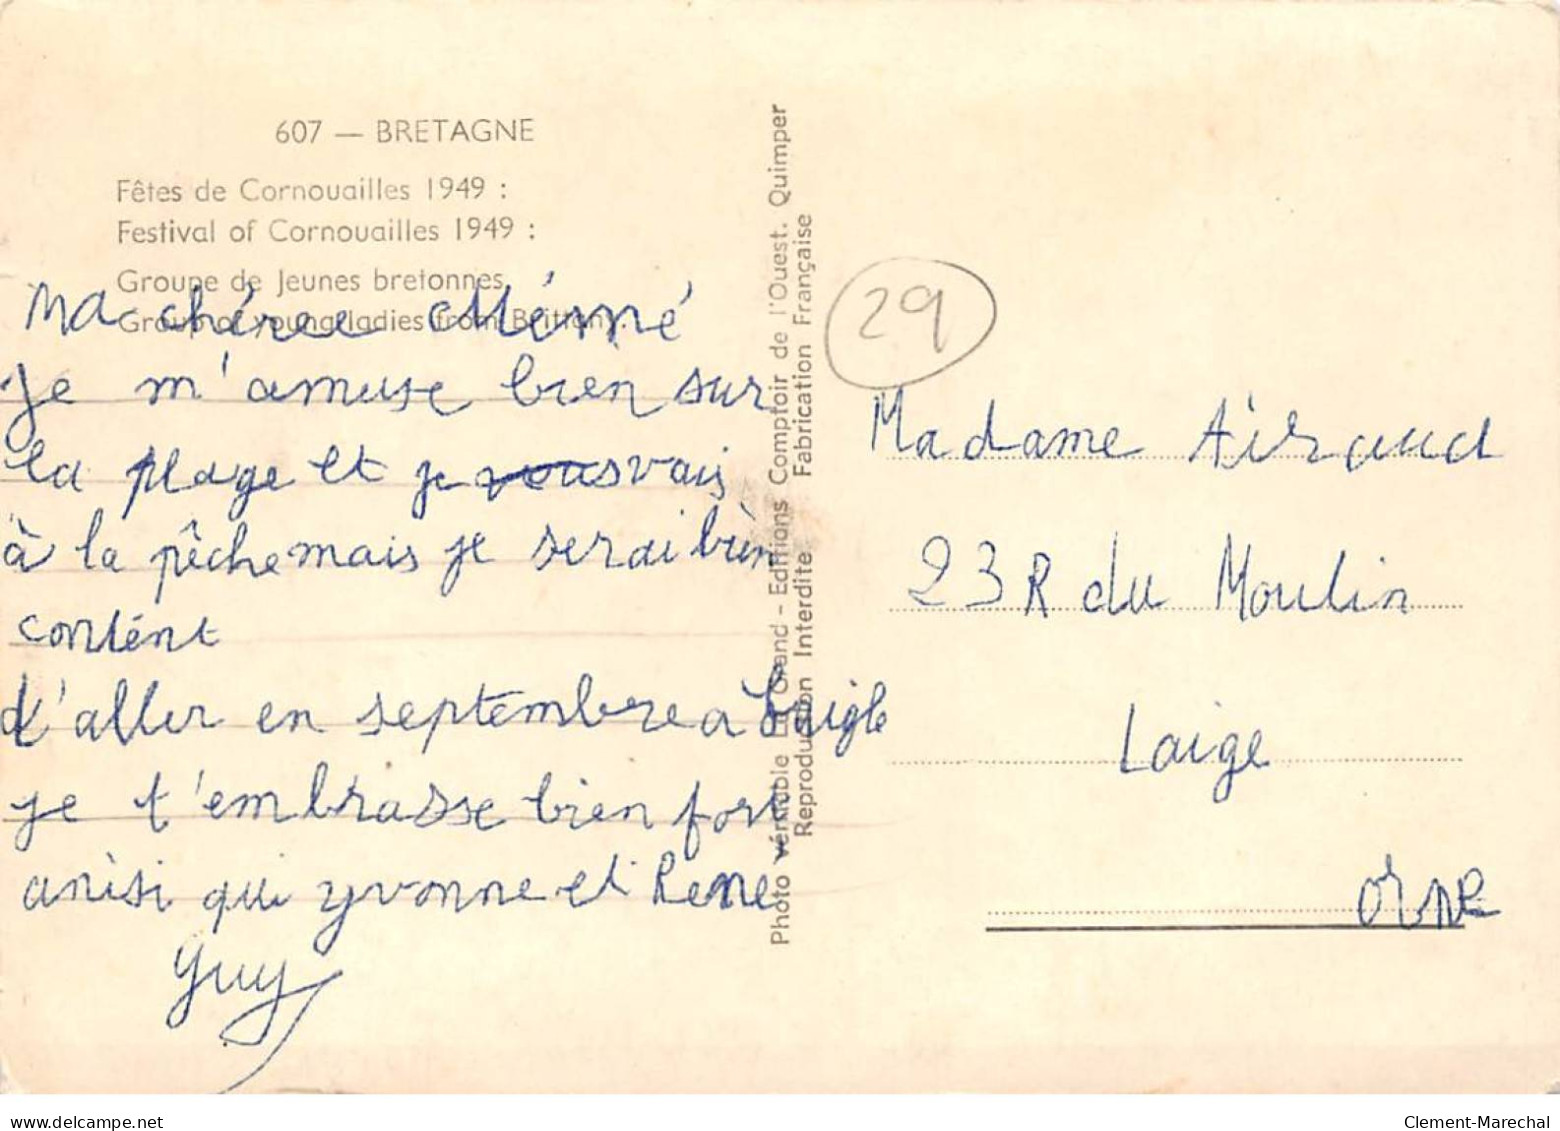 607 — BRETAGNE
Fêtes de Cornouailles 1949 :
Festival of Cornouailles 1949 :
Groupe de Jeunes bretonnes
Group of young ladies from Brittany.
Ma chéree Mémé
Je m'amuse bien sur
la plage et je vous vais
à la pêche mais je serai bien
contént
d'aller en septembre a Laigle
je t'embrasse bien fort
anisi qui yvonne et Rene
Guy
Photo véritable Le Grand - Editions Comptoir de l'Ouest. Quimper
Reproduction Interdite Fabrication Française
29
Madame Airaud
23 R du Moulin
Laige
Orne
www.delcampe.net
Clement-Marechal